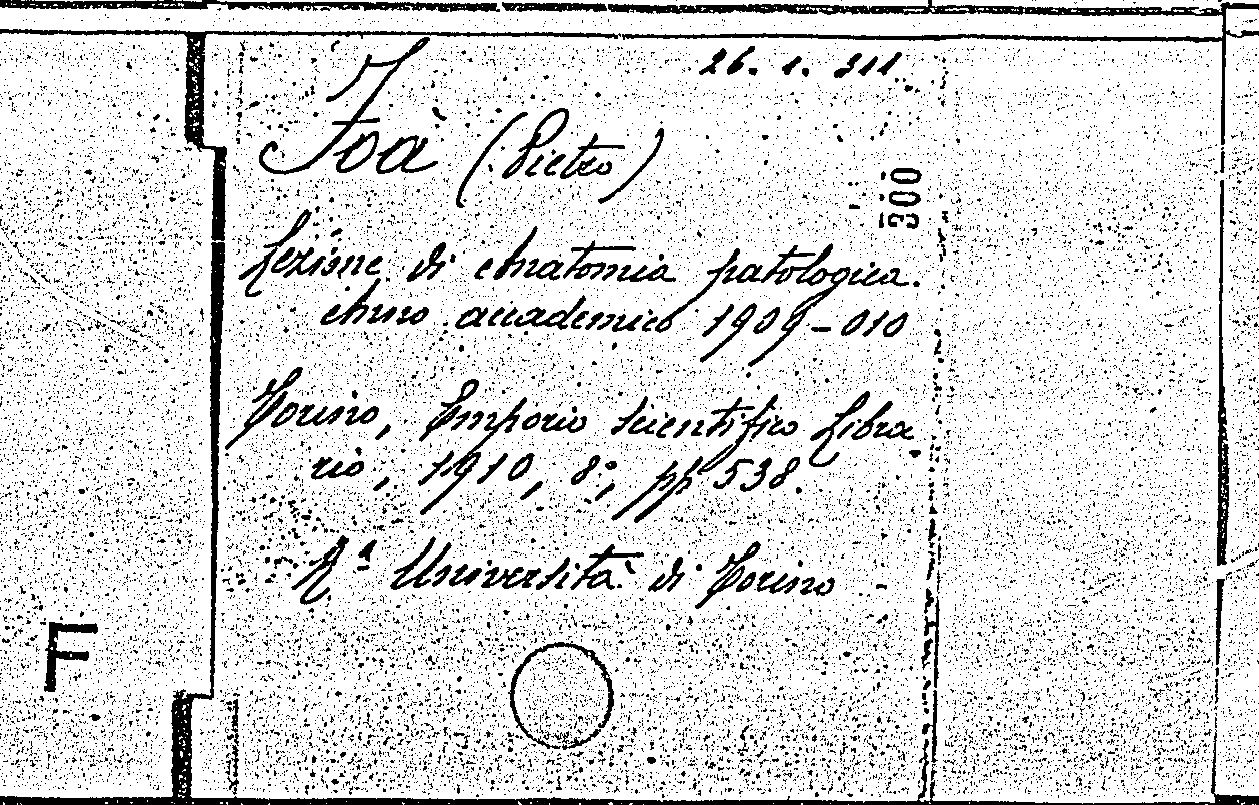 26. 1. 311.
Foà (Pietro)
300
Lezione di Anatomia patologica.
Anno accademico 1909-010
Torino, Emporio scientifico Libra
rio, 1910, 8º, pp 538.
Rª Università di Torino -
F